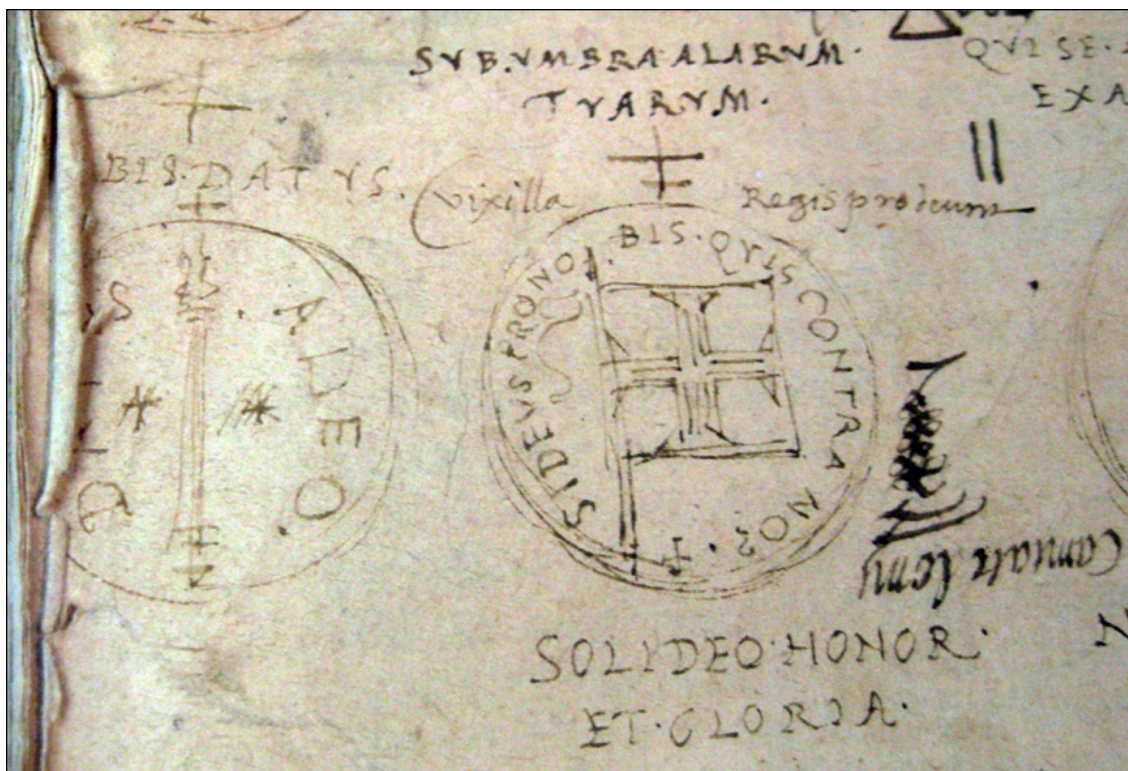 SVB.VMBRA ALARVM.
TVARVM.
QVI SE.
EXA
BIS.DATVS.
Vixilla Regis prodeunt
A DEO.
SI DEVS PRO NO.BIS.QVIS CONTRA NOS.
SOLI DEO.HONOR.
ET.GLORIA.